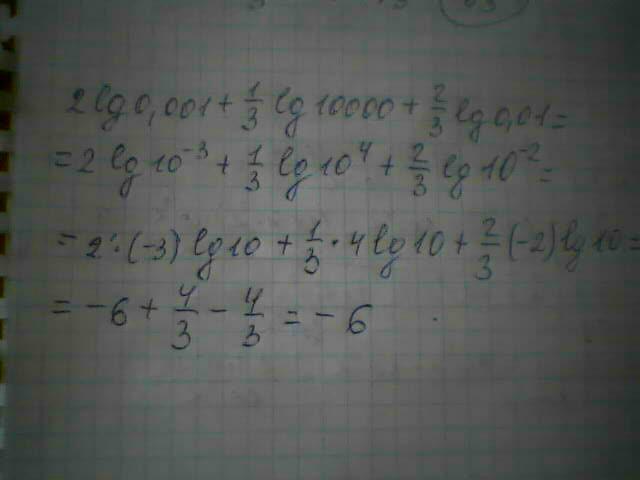 2 lg 0,001 + 1/3 lg 10000 + 2/3 lg 0,01 =
= 2 lg 10^-3 + 1/3 lg 10^4 + 2/3 lg 10^-2 =
= 2 · (-3) lg 10 + 1/3 · 4 lg 10 + 2/3 (-2) lg 10 =
= -6 + 4/3 - 4/3 = -6